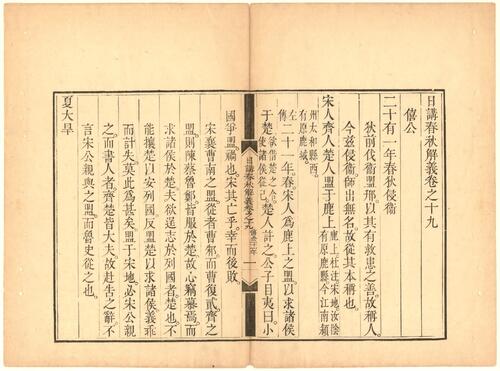 日講春秋解義卷之十九
僖公
二十有一年春狄侵衞
狄前伐衞盟邢以其有救患之善故稱人
今兹侵衞師出無名故從其本稱也
宋人齊人楚人盟于鹿上
鹿上杜注宋地汝陰
有原鹿縣今江南潁
州太和縣西
有原鹿城
左傳
二十一年春宋人爲鹿上之盟以求諸侯
于楚
欲借楚之令
使諸侯從已
楚人許之公子目夷曰小
日講春秋解義
卷之十九
僖公二十一年
一
國爭盟禍也宋其亡乎幸而後敗
宋襄曹南之盟從者曹邾而曹復貳齊之
盟則陳蔡魯鄭皆服於楚故心竊慕焉而
求諸侯於楚夫欲逞志於列國者楚也不
能攘楚以安列國反盟楚以求諸侯義乖
而計失莫此爲甚矣盟于宋地必宋公親
之而書人者齊楚皆大夫故其赴告之辭不
言宋公親與之盟而魯史從之也
夏大旱